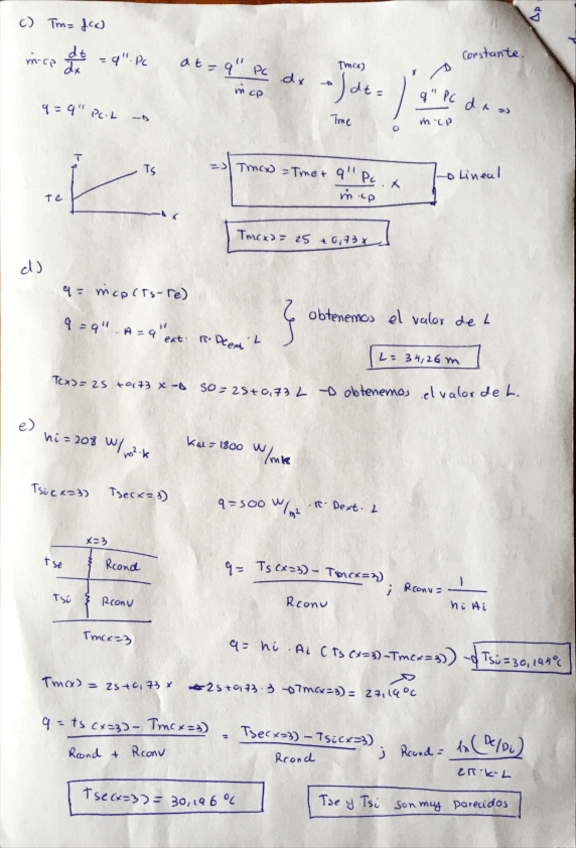 c) Tm = f(x)
ṁ·cp dt/dx = q''·Pc   dt = q'' Pc / ṁ cp dx → ∫ Tme Tm(x) dt = ∫ 0 x q'' Pc / ṁ·cp dx ⇒   constante.
q = q'' Pc·L →
T   Ts   Te   x
⇒ Tm(x) = Tme + q'' Pc / ṁ·cp · x → Lineal
Tm(x) = 25 + 0,73 x
d)
q = ṁcp (Ts-Te)
q = q''·A = q''ext· π·Dext·L   } obtenemos el valor de L
L = 34,26 m
T(x) = 25 + 0,73 x → 50 = 25 + 0,73 L → obtenemos el valor de L.
e)
hi = 208 W/m²·k   kal = 1800 W/mk
Tsi(x=3)   Tse(x=3)   q = 500 W/m² · π· Dext· L
x=3
Tse   Rcond
Tsi   Rconv
Tm(x=3)
q = Ts(x=3) - Tm(x=3) / Rconv ; Rconv = 1 / hi Ai
q = hi · Ai (Ts(x=3) - Tm(x=3)) → Tsi = 30,194 ºC
Tm(x) = 25 + 0,73 x   25 + 0,73·3 → Tm(x=3) = 27,19 ºC
q = ts(x=3) - Tm(x=3) / Rcond + Rconv = Tse(x=3) - Tsi(x=3) / Rcond ; Rcond = ln(De/Di) / 2π·k·L
Tse(x=3) = 30,196 ºC   Tse y Tsi son muy parecidos